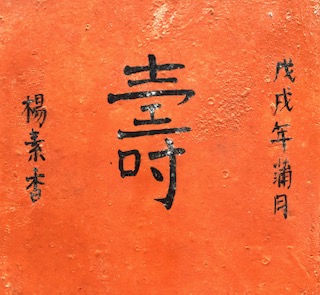 戊戌年蒲月
壽
楊素杏